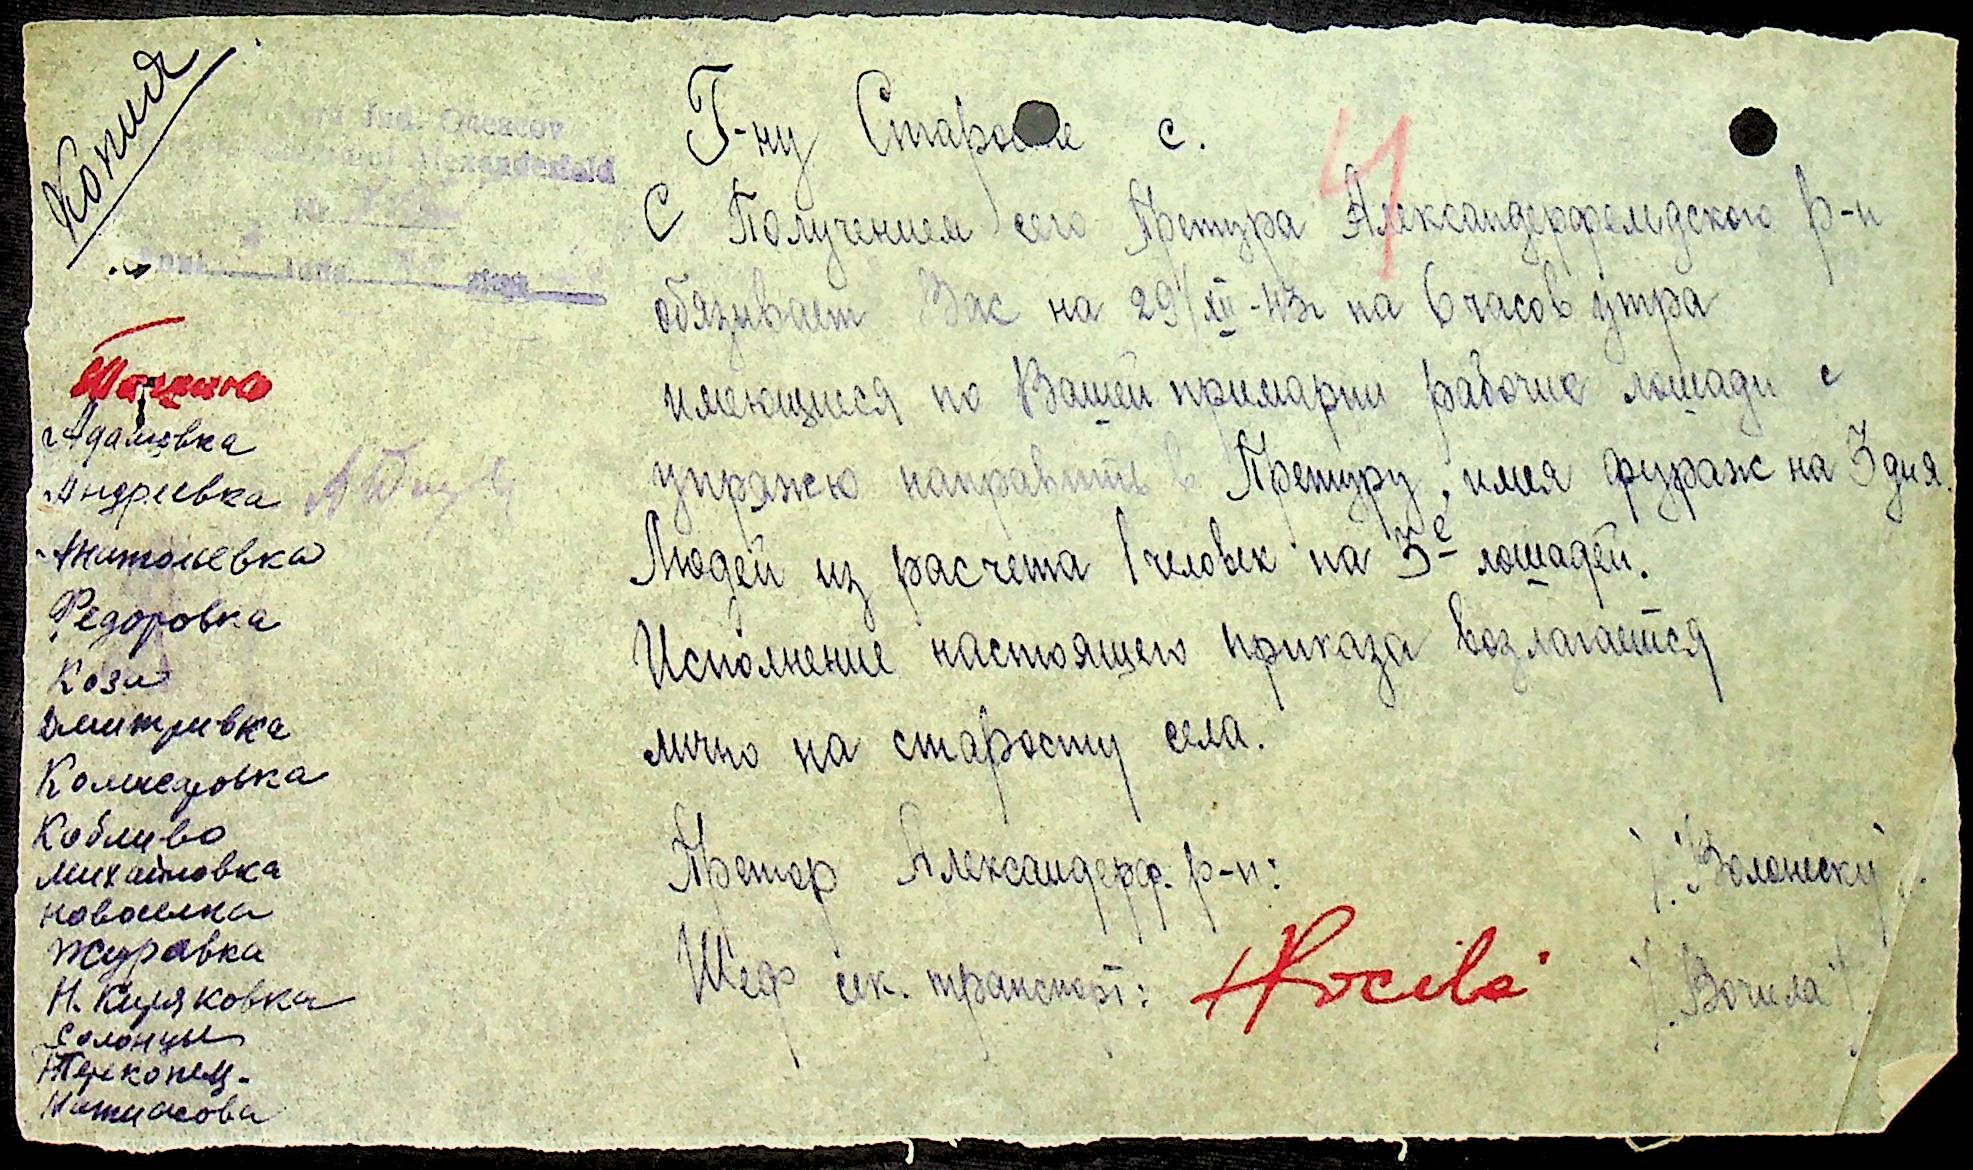 Копия
Jud. Oceacov
Alexanderfeld
Nr
Анатольевка
Адамовка
Андреевка
Федоровка
Козл
Дмитривка
Комисаровка
Коблево
Михайловка
Новоселка
Журавка
Н. Киряковка
Солонцы
Г-ну Старосте с.
4
С Получением сего Претура Александерфельдского р-н
обязывает Вас на 29/XII-43г на 6 часов утра
имеющиеся по Вашей примарии рабочие лошади с
упряжю направить в Претуру, имея фураж на 3 дня.
Людей из расчета 1 человек на 3е лошадей.
Исполнение настоящего приказа возлагается
лично на старосту села.
Претор Александерф. р-н: /. Волонеску /.
Шеф сек. транспорт: /. Вочила /.